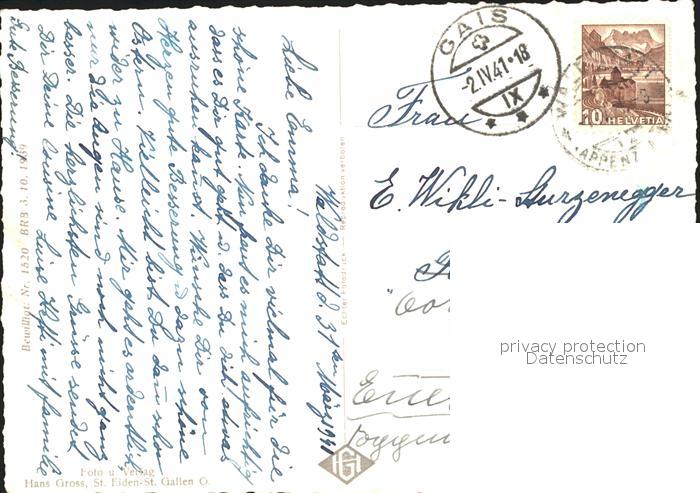 Waldstatt d 31ten März 1941
Liebe Emma!
Ich danke Dir vielmal für die
schöne Karte. Nun freut es mich aufrichtig
dass es Dir gut geht u. dass Du dich etwas
ausruhen kannst. Wünsche Dir von
Herzen gute Besserung u dazu schöne
Ostern. Vielleicht bist Du dann schon
wieder zu Hause. Mir geht es ordentlich
nur die Augen sind noch nicht ganz
besser. Die herzlichsten Grüsse sendet
Dir Deine Cousine Lise Hetti mit Familie
Gute Besserung!
Bewilligt: Nr. 1520 BRB 3. 10. 1939
Foto u. Verlag
Hans Gross, St. Fiden-St. Gallen O.
Echter Fotodruck — Reproduktion verboten
IGH
GAIS
-2.IV.41•18
IX
WALDSTATT
APPENZ
10 HELVETIA
Frau
E. Wikli-Sturzenegger
privacy protection
Datenschutz